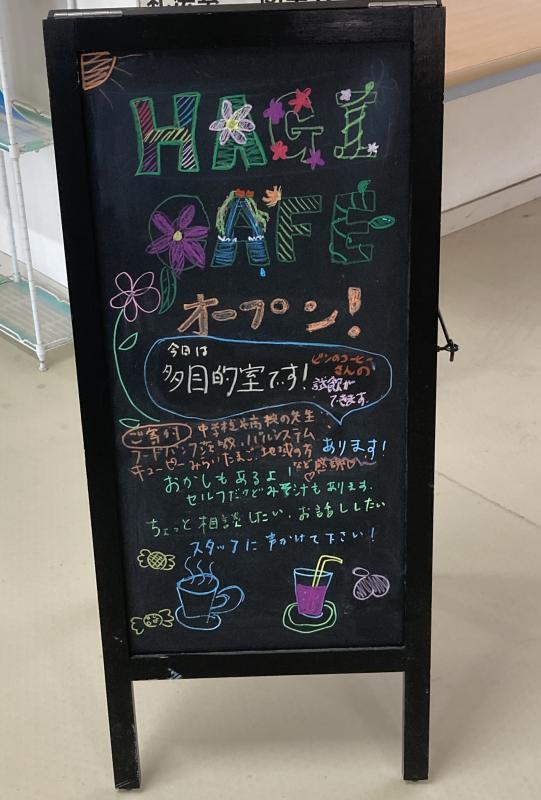 HAGI
CAFE
オープン!
今日は
多目的室です!
ビンのコーヒー
さんの
試飲が
できます。
ご寄付
中学校や高校の先生、
フードバンク茨城、パルシステム
キューピーみらいたまご、地域の方
など感謝♡
あります!
おかしもあるよ!
セルフだけどみそ汁もあります。
ちょっと相談したい、お話ししたい
スタッフに声かけて下さい!